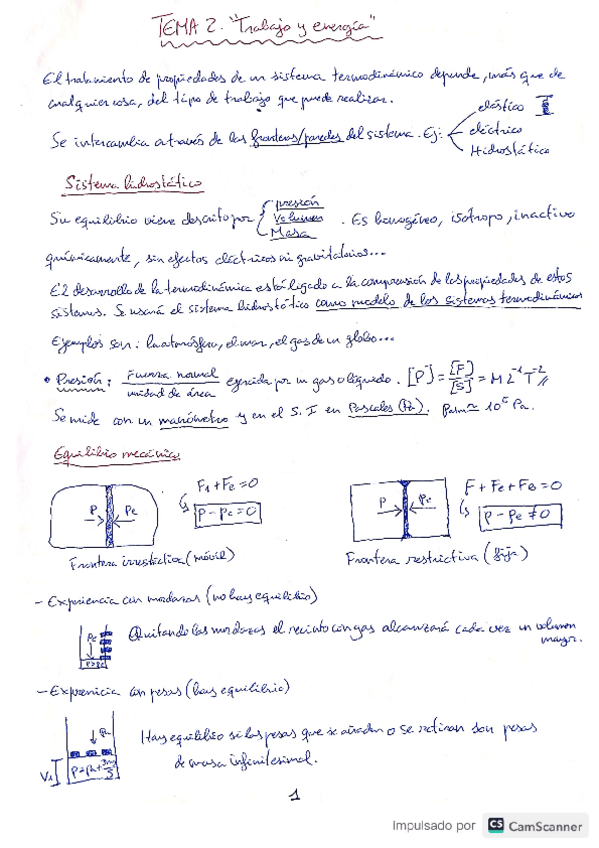 TEMA 2. "Trabajo y energía"
El tratamiento de propiedades de un sistema termodinámico depende, más que de
cualquier cosa, del tipo de trabajo que puede realizar.
Se intercambia a través de las fronteras/paredes del sistema. Ej:
elástico
eléctrico
Hidrostático
Sistema hidrostático
Su equilibrio viene descrito por
presión
Volumen
Masa
. Es homogéneo, isótropo, inactivo
químicamente, sin efectos eléctricos ni gravitatorios...
El desarrollo de la termodinámica está ligado a la comprensión de las propiedades de estos
sistemas. Se usará el sistema hidrostático como modelo de los sistemas termodinámicos
Ejemplos son: la atmósfera, el mar, el gas de un globo...
• Presión: Fuerza normal / unidad de área ejercida por un gas o líquido. [P] = [F]/[S] = M L⁻¹ T⁻²
Se mide con un manómetro y en el S.I en Pascales (Pa). Patm ≃ 10⁵ Pa.
Equilibrio mecánico
P Pe
F1 + Fe = 0
P - Pe = 0
Frontera irrestrictiva (móvil)
P Pe
F + Fe + FR = 0
P - Pe ≠ 0
Frontera restrictiva (fija)
- Experiencia con mordazas (no hay equilibrio)
Pe
P>Pe
Quitando las mordazas el recinto con gas alcanzará cada vez un volumen
mayor.
- Experiencia con pesas (hay equilibrio)
V1
Hay equilibrio si las pesas que se añadan o se retiran son pesas
de masa infinitesimal.
1
Impulsado por CS CamScanner